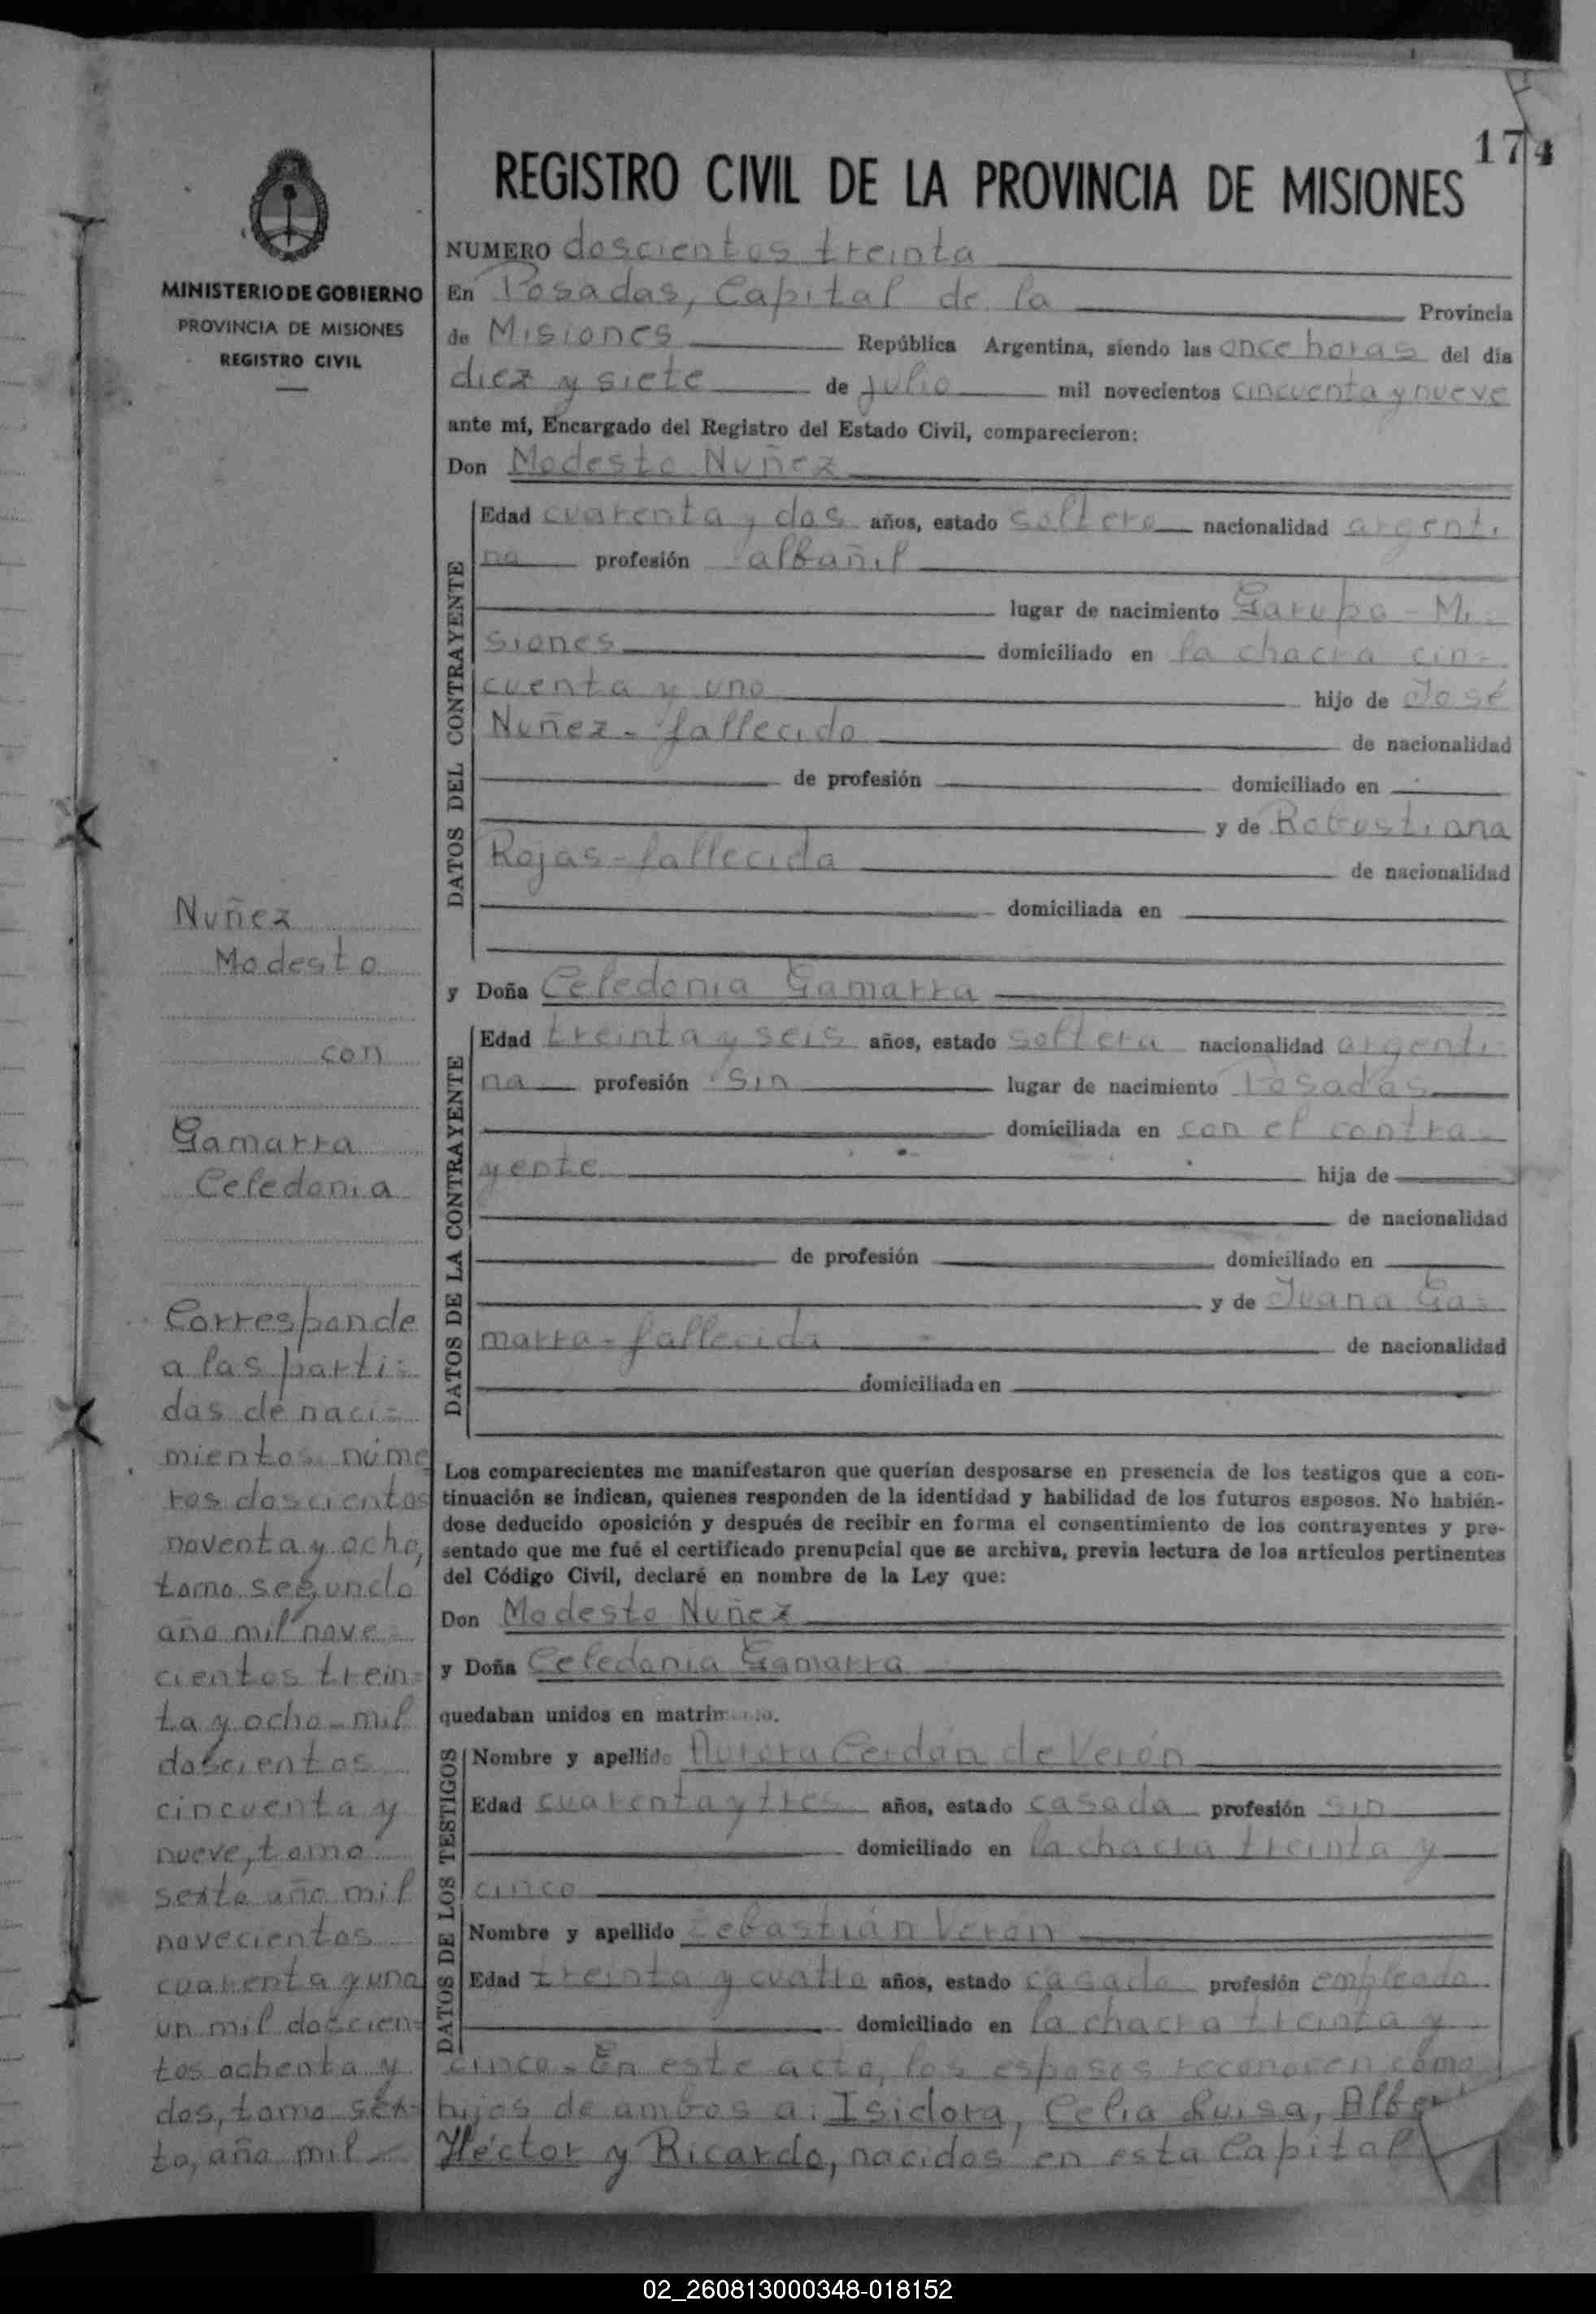 174
REGISTRO CIVIL DE LA PROVINCIA DE MISIONES
MINISTERIO DE GOBIERNO
PROVINCIA DE MISIONES
REGISTRO CIVIL
NUMERO doscientos treinta
En Posadas, Capital de la Provincia
de Misiones República Argentina, siendo las once horas del día
diez y siete de julio mil novecientos cincuenta y nueve
ante mí, Encargado del Registro del Estado Civil, comparecieron:
Don Modesto Nuñez
DATOS DEL CONTRAYENTE
Edad cuarenta y dos años, estado soltero nacionalidad argenti
na profesión albañil
lugar de nacimiento Garupa - Mi=
siones domiciliado en la chacra cin=
cuenta y uno hijo de José
Nuñez - fallecido de nacionalidad
de profesión domiciliado en
y de Robustiana
Rojas - fallecida de nacionalidad
domiciliada en
y Doña Celedonia Gamarra
DATOS DE LA CONTRAYENTE
Edad treinta y seis años, estado soltera nacionalidad argenti=
na profesión sin lugar de nacimiento Posadas
domiciliada en con el contra=
yente hija de
de nacionalidad
de profesión domiciliado en
y de Juana Ga=
marra - fallecida de nacionalidad
domiciliada en
Los comparecientes me manifestaron que querían desposarse en presencia de los testigos que a con-
tinuación se indican, quienes responden de la identidad y habilidad de los futuros esposos. No habién-
dose deducido oposición y después de recibir en forma el consentimiento de los contrayentes y pre-
sentado que me fué el certificado prenupcial que se archiva, previa lectura de los artículos pertinentes
del Código Civil, declaré en nombre de la Ley que:
Don Modesto Nuñez
y Doña Celedonia Gamarra
quedaban unidos en matrimonio.
DATOS DE LOS TESTIGOS
Nombre y apellido Aurora Cerdán de Verón
Edad cuarenta y tres años, estado casada profesión sin
domiciliado en la chacra treinta y
cinco
Nombre y apellido Sebastián Veron
Edad treinta y cuatro años, estado casado profesión empleado
domiciliado en la chacra treinta y
cinco. En este acto, los esposos reconocen como
hijos de ambos a: Isidora, Celia Luisa,
Héctor y Ricardo, nacidos en esta Capital
Nuñez
Modesto
con
Gamarra
Celedonia
Corresponde
a las parti=
das de naci=
mientos núme
ros doscientos
noventa y ocho,
tomo segundo
año mil nove=
cientos trein=
ta y ocho - mil
doscientos
cincuenta y
nueve, tomo
sexto año mil
novecientos
cuarenta y uno
un mil doscien=
tos ochenta y
dos, tomo sex=
to, año mil
02_260813000348-018152